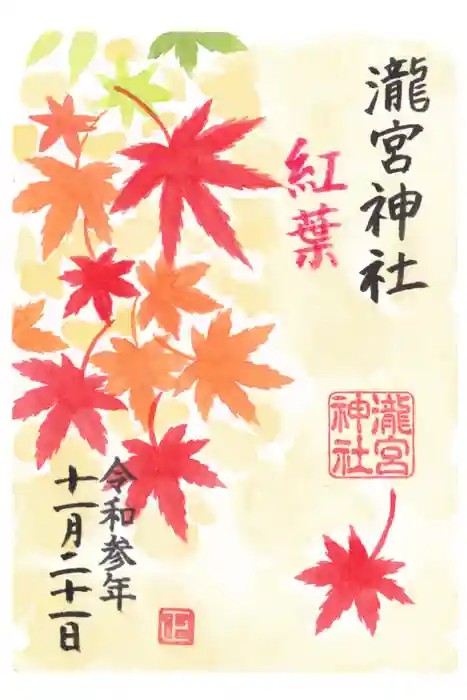 瀧宮神社
紅葉
瀧宮
神社
令和参年
十一月二十一日
正